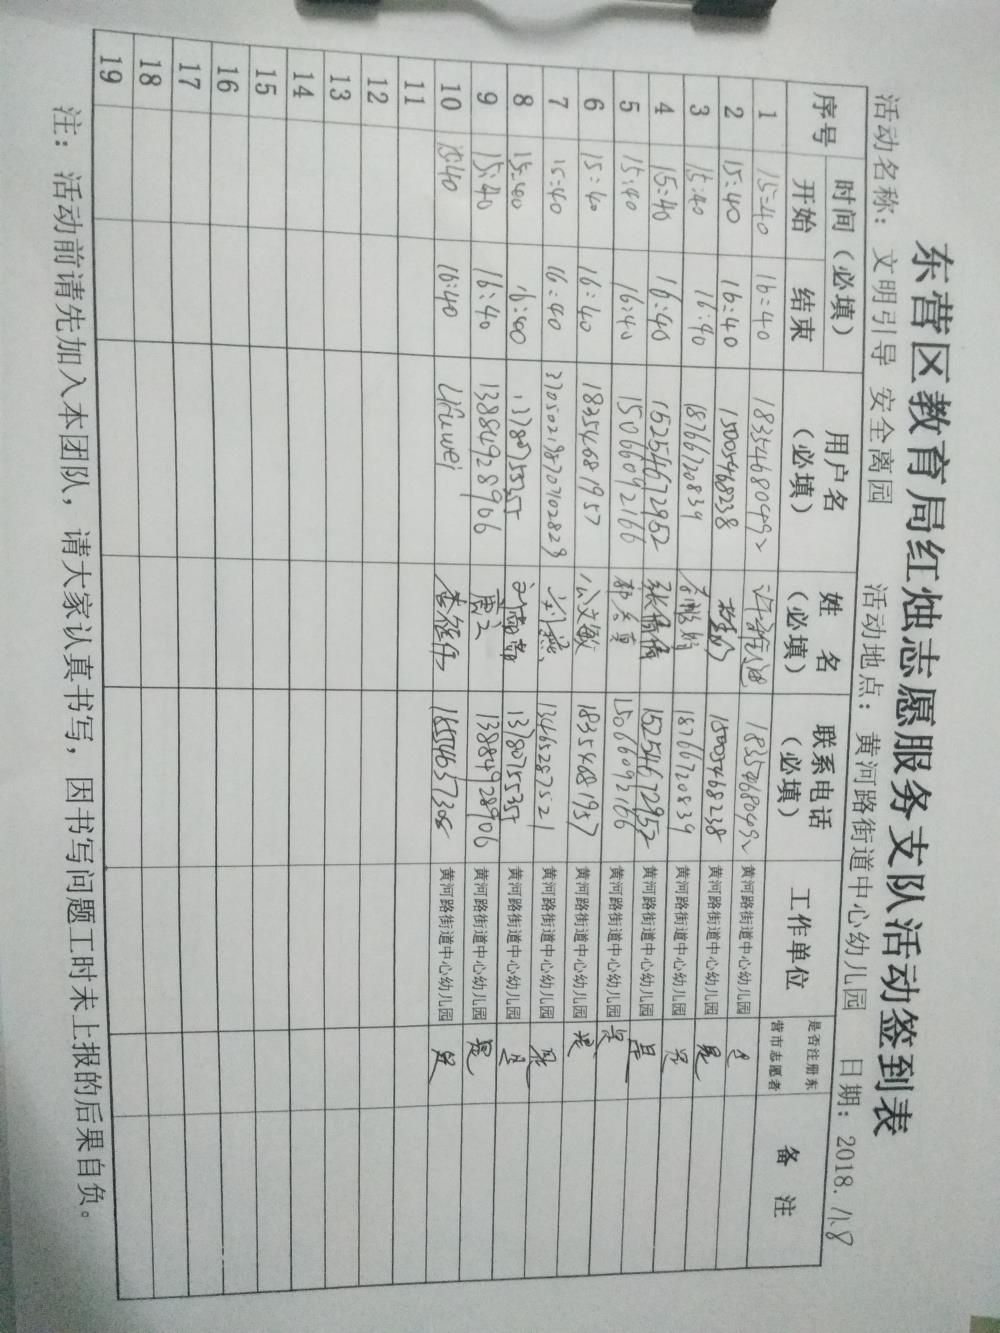 东营区教育局红烛志愿服务支队活动签到表
活动名称：文明引导 安全离园 活动地点：黄河路街道中心幼儿园 日期：2018.1.8
序号 时间（必填） 用户名（必填） 姓名（必填） 联系电话（必填） 工作单位 是否注册东营市志愿者 备注
开始 结束
1 15:40 16:40 18354680492 18354680492 黄河路街道中心幼儿园 是
2 15:40 16:40 15005468238 15005468238 黄河路街道中心幼儿园 是
3 15:40 16:40 18766720839 18766720839 黄河路街道中心幼儿园 是
4 15:40 16:40 15254672952 张倩倩 15254672952 黄河路街道中心幼儿园 是
5 15:40 16:40 15066092166 15066092166 黄河路街道中心幼儿园 是
6 15:40 16:40 18354681957 公文敏 18354681957 黄河路街道中心幼儿园 是
7 15:40 16:40 370502198707102829 刘燕 13465287521 黄河路街道中心幼儿园 是
8 15:40 16:40 13780755357 13780755357 黄河路街道中心幼儿园 是
9 15:40 16:40 13884928906 13884928906 黄河路街道中心幼儿园 是
10 15:40 16:40 李维伟 黄河路街道中心幼儿园 是
11
12
13
14
15
16
17
18
19
注：活动前请先加入本团队，请大家认真书写，因书写问题工时未上报的后果自负。